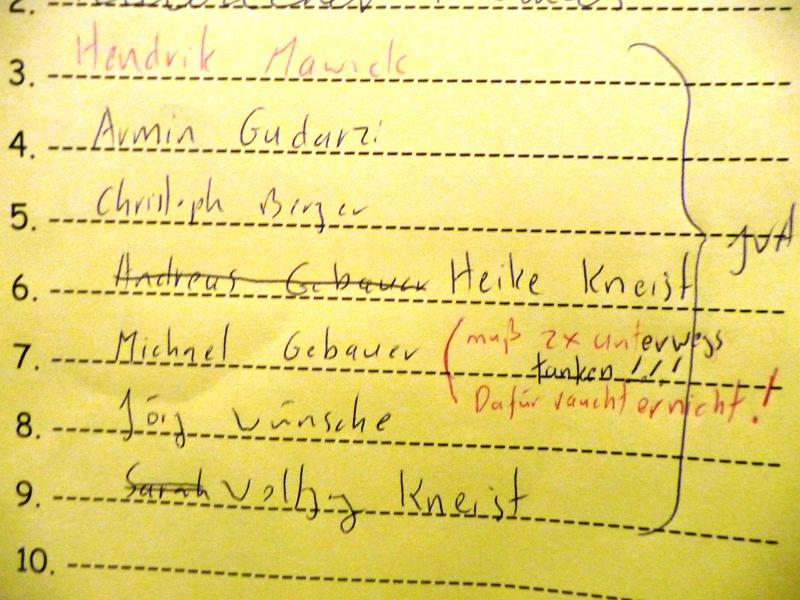 2.
3. Hendrik Mawick
4. Armin Gudarzi
5. Christoph Berger
JVA
6. Andreas Gebauer Heike Kneist
7. Michael Gebauer (muß 2x unterwegs
tanken!!!
Dafür raucht er nicht!
8. Jörg Wünsche
9. Sarah Volker Kneist
10.